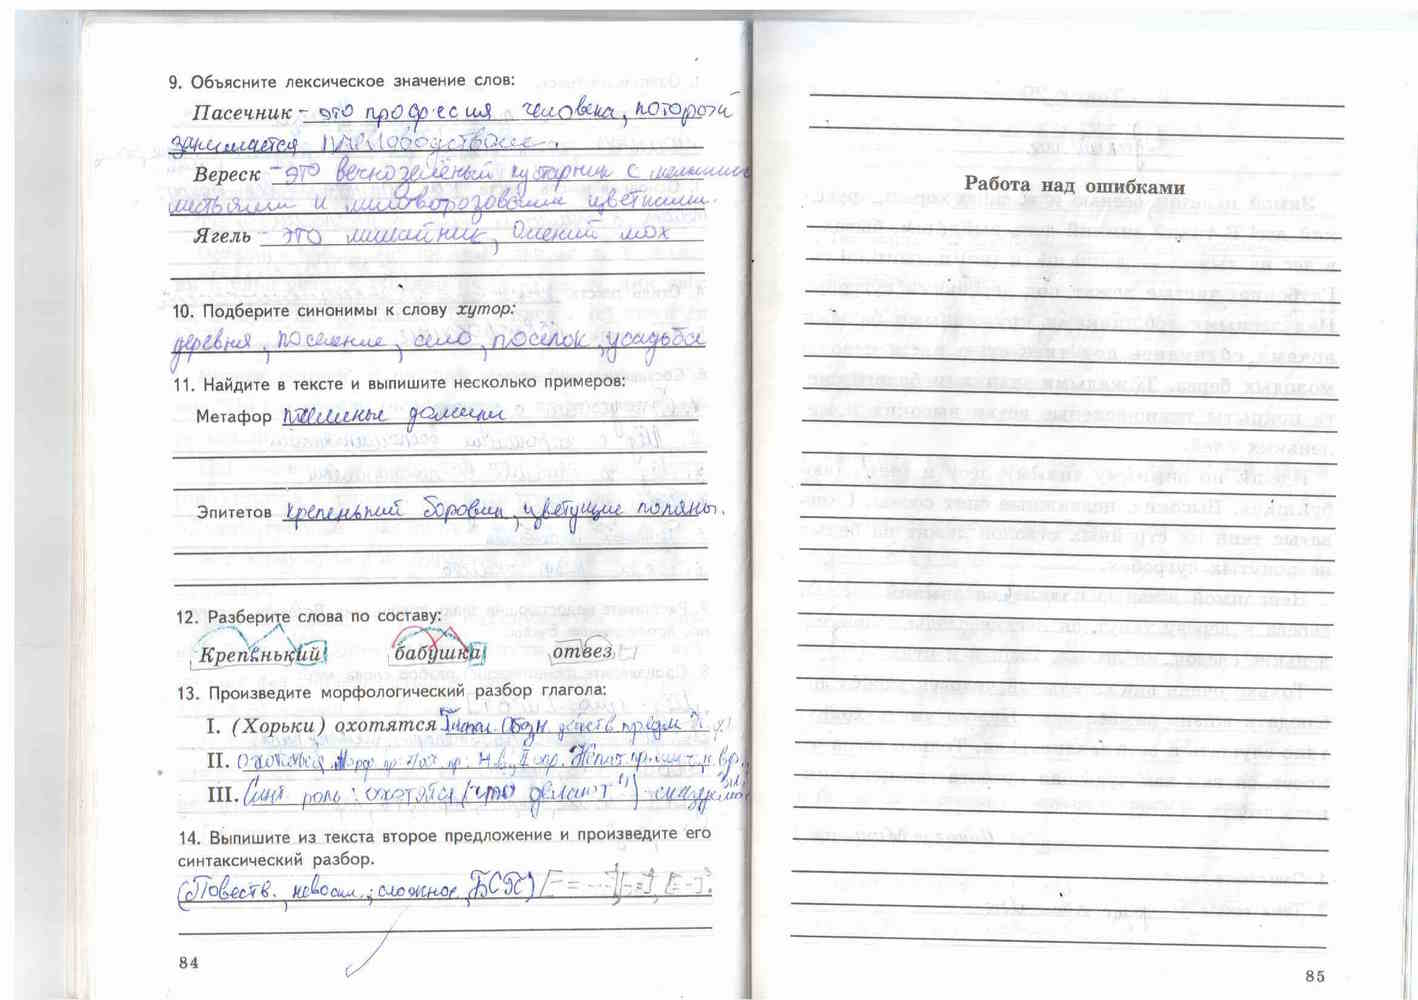 9. Объясните лексическое значение слов:
Пасечник - это профессия человека, который
занимается пчеловодством.
Вереск - это вечнозелёный кустарник с мелкими
листьями и лиловорозовыми цветками.
Ягель - это лишайник, Олений мох
10. Подберите синонимы к слову хутор:
деревня, поселение, село, посёлок, усадьба
11. Найдите в тексте и выпишите несколько примеров:
Метафор пчелиные домики
Эпитетов крепенький боровик, цветущие поляны.
12. Разберите слова по составу:
Крепенький бабушки отвез
13. Произведите морфологический разбор глагола:
I. (Хорьки) охотятся Обозн. действ. предм
II.
III. Синт. роль: охотятся (что делают?) сказуемое
14. Выпишите из текста второе предложение и произведите его
синтаксический разбор.
(Повеств., невоскл., сложное, БСП)
84
Работа над ошибками
85